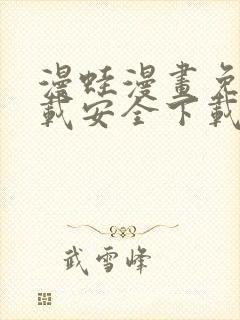 漫蛙漫畫免
載安全下載
武雪峰